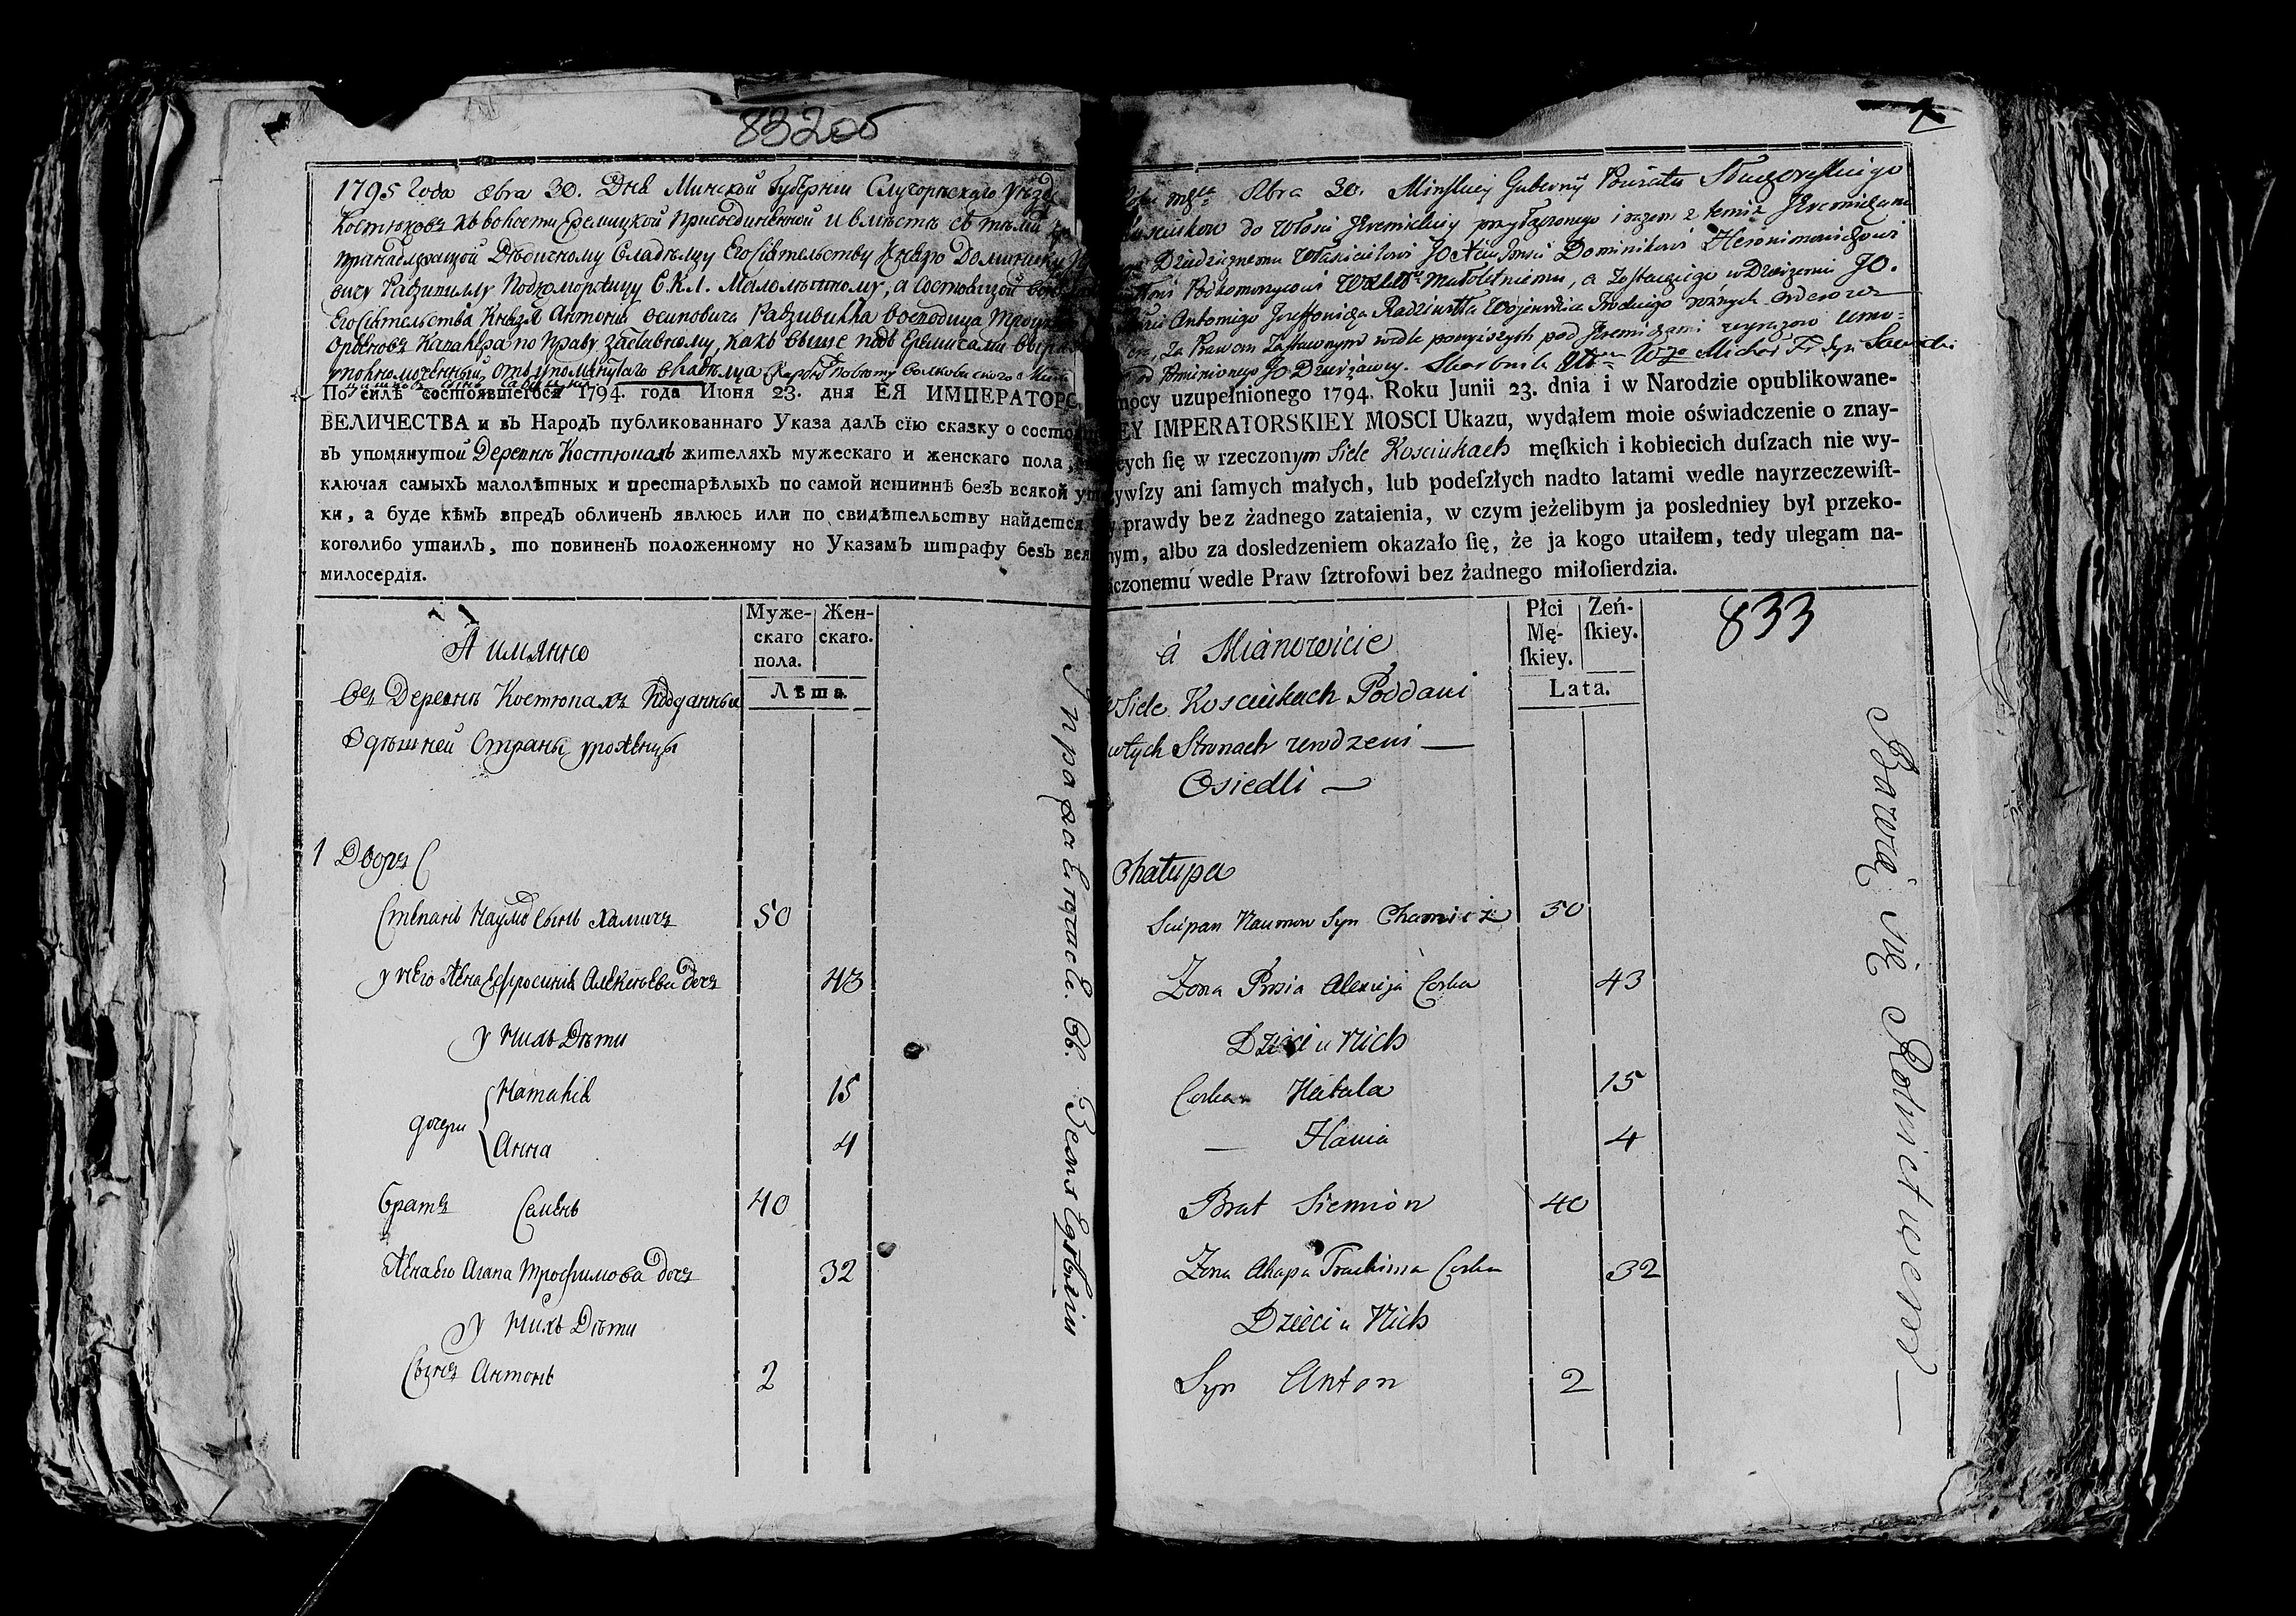 83205
1795 года 8bra 30. Дня Минской Губерніи Слуцорѣцкаго уѣзда
Костюковъ къ волости Еремицкой присоединенной и вмѣстѣ съ тѣми
принадлежащой Дѣдисному Владѣльцу Его Сіятельству Князю Доминику
вичу Радзивиллу Подкоморѣцу В.К.Л. Малолѣтному, а состоящой
Его Сіятельства Князя Антонія Осиповича Радзивилла Воеводица Троцкаго
Орденовъ Кавалера по праву заставному, какъ выше подъ Еремичами
отъ упомянутаго владѣльца
По силѣ состоявшегося 1794. года Июня 23. дня ЕЯ ИМПЕРАТОРС
ВЕЛИЧЕСТВА и въ Народъ публикованнаго Указа далъ сїю сказку о состо
въ упомянутой Деревнѣ Костюкахъ жителяхъ мужескаго и женскаго пола,
ключая самыхъ малолѣтныхъ и престарѣлыхъ по самой истиннѣ безъ всякой ут
ки, а буде кѣмъ впредъ обличенъ явлюсь или по свидѣтельству найдется,
коголибо утаилъ, то повиненъ положенному по Указамъ штрафу безъ вся
милосердїя.
А имянно
Муже-
скаго
пола.
Жен-
скаго.
Лѣта.
Въ Деревнѣ Костюкахъ Подданныи
Здѣшней Страны уроженцы
1 Дворъ
Степанъ Наумовъ Сынъ Хамичъ 50
у него Жена Ефросинія Алексѣева дочь 43
у нихъ Дѣти
дочери
Наталія 15
Анна 4
братъ Семенъ 40
Жена его Агапа Трофимова дочь 32
у нихъ Дѣти
Сынъ Антонъ 2
8bra 30. Minskiey Gubernij Powiatu
do Włości Jeremickiey przyłączonego i razem z temiż Jeremiczami
Dziedzicznemu Właścicielowi JO Dominikowi Hieronimowiczowi
Podkomorzycowi małoletniemu, a zostającego w Dzierżeniu JO.
Antoniego Jozeffowicza Radziwiłła Wojewodzica Trockiego różnych orderow
za Prawem Zastawnym wedle powyższych pod Jeremiczami
od pomienionego JO Dzierżawcy.
mocy uzupełnionego 1794. Roku Junii 23. dnia i w Narodzie opublikowane-
EY IMPERATORSKIEY MOSCI Ukazu, wydałem moie oświadczenie o znay-
cych ſię w rzeczonym Siele Kosciukach męſkich i kobiecich duſzach nie wy-
ywſzy ani ſamych małych, lub podeſzłych nadto latami wedle nayrzeczewiſt-
y prawdy bez żadnego zataienia, w czym jeżelibym ja posledniey był przeko-
nym, albo za dosledzeniem okazało ſię, że ja kogo utaiłem, tedy ulegam na-
czonemu wedle Praw ſztrofowi bez żadnego miłoſierdzia.
833
á Mianowicie
Płci
Mę-
ſkiey.
Zeń-
ſkiey.
Lata.
w Siele Kosciukach Poddani
w tych Stronach urodzeni —
Osiedli —
Chałupa
Sciepan Naumow Syn Chamicz 50
Zona Prosia Alexieja Corka 43
Dzieci u Nich
Corka Natala 15
— Hania 4
Brat Siemion 40
Zona Ahapa Trachima Corka 32
Dzieci u Nich
Syn Anton 2
Bawią się Rolnictwem —